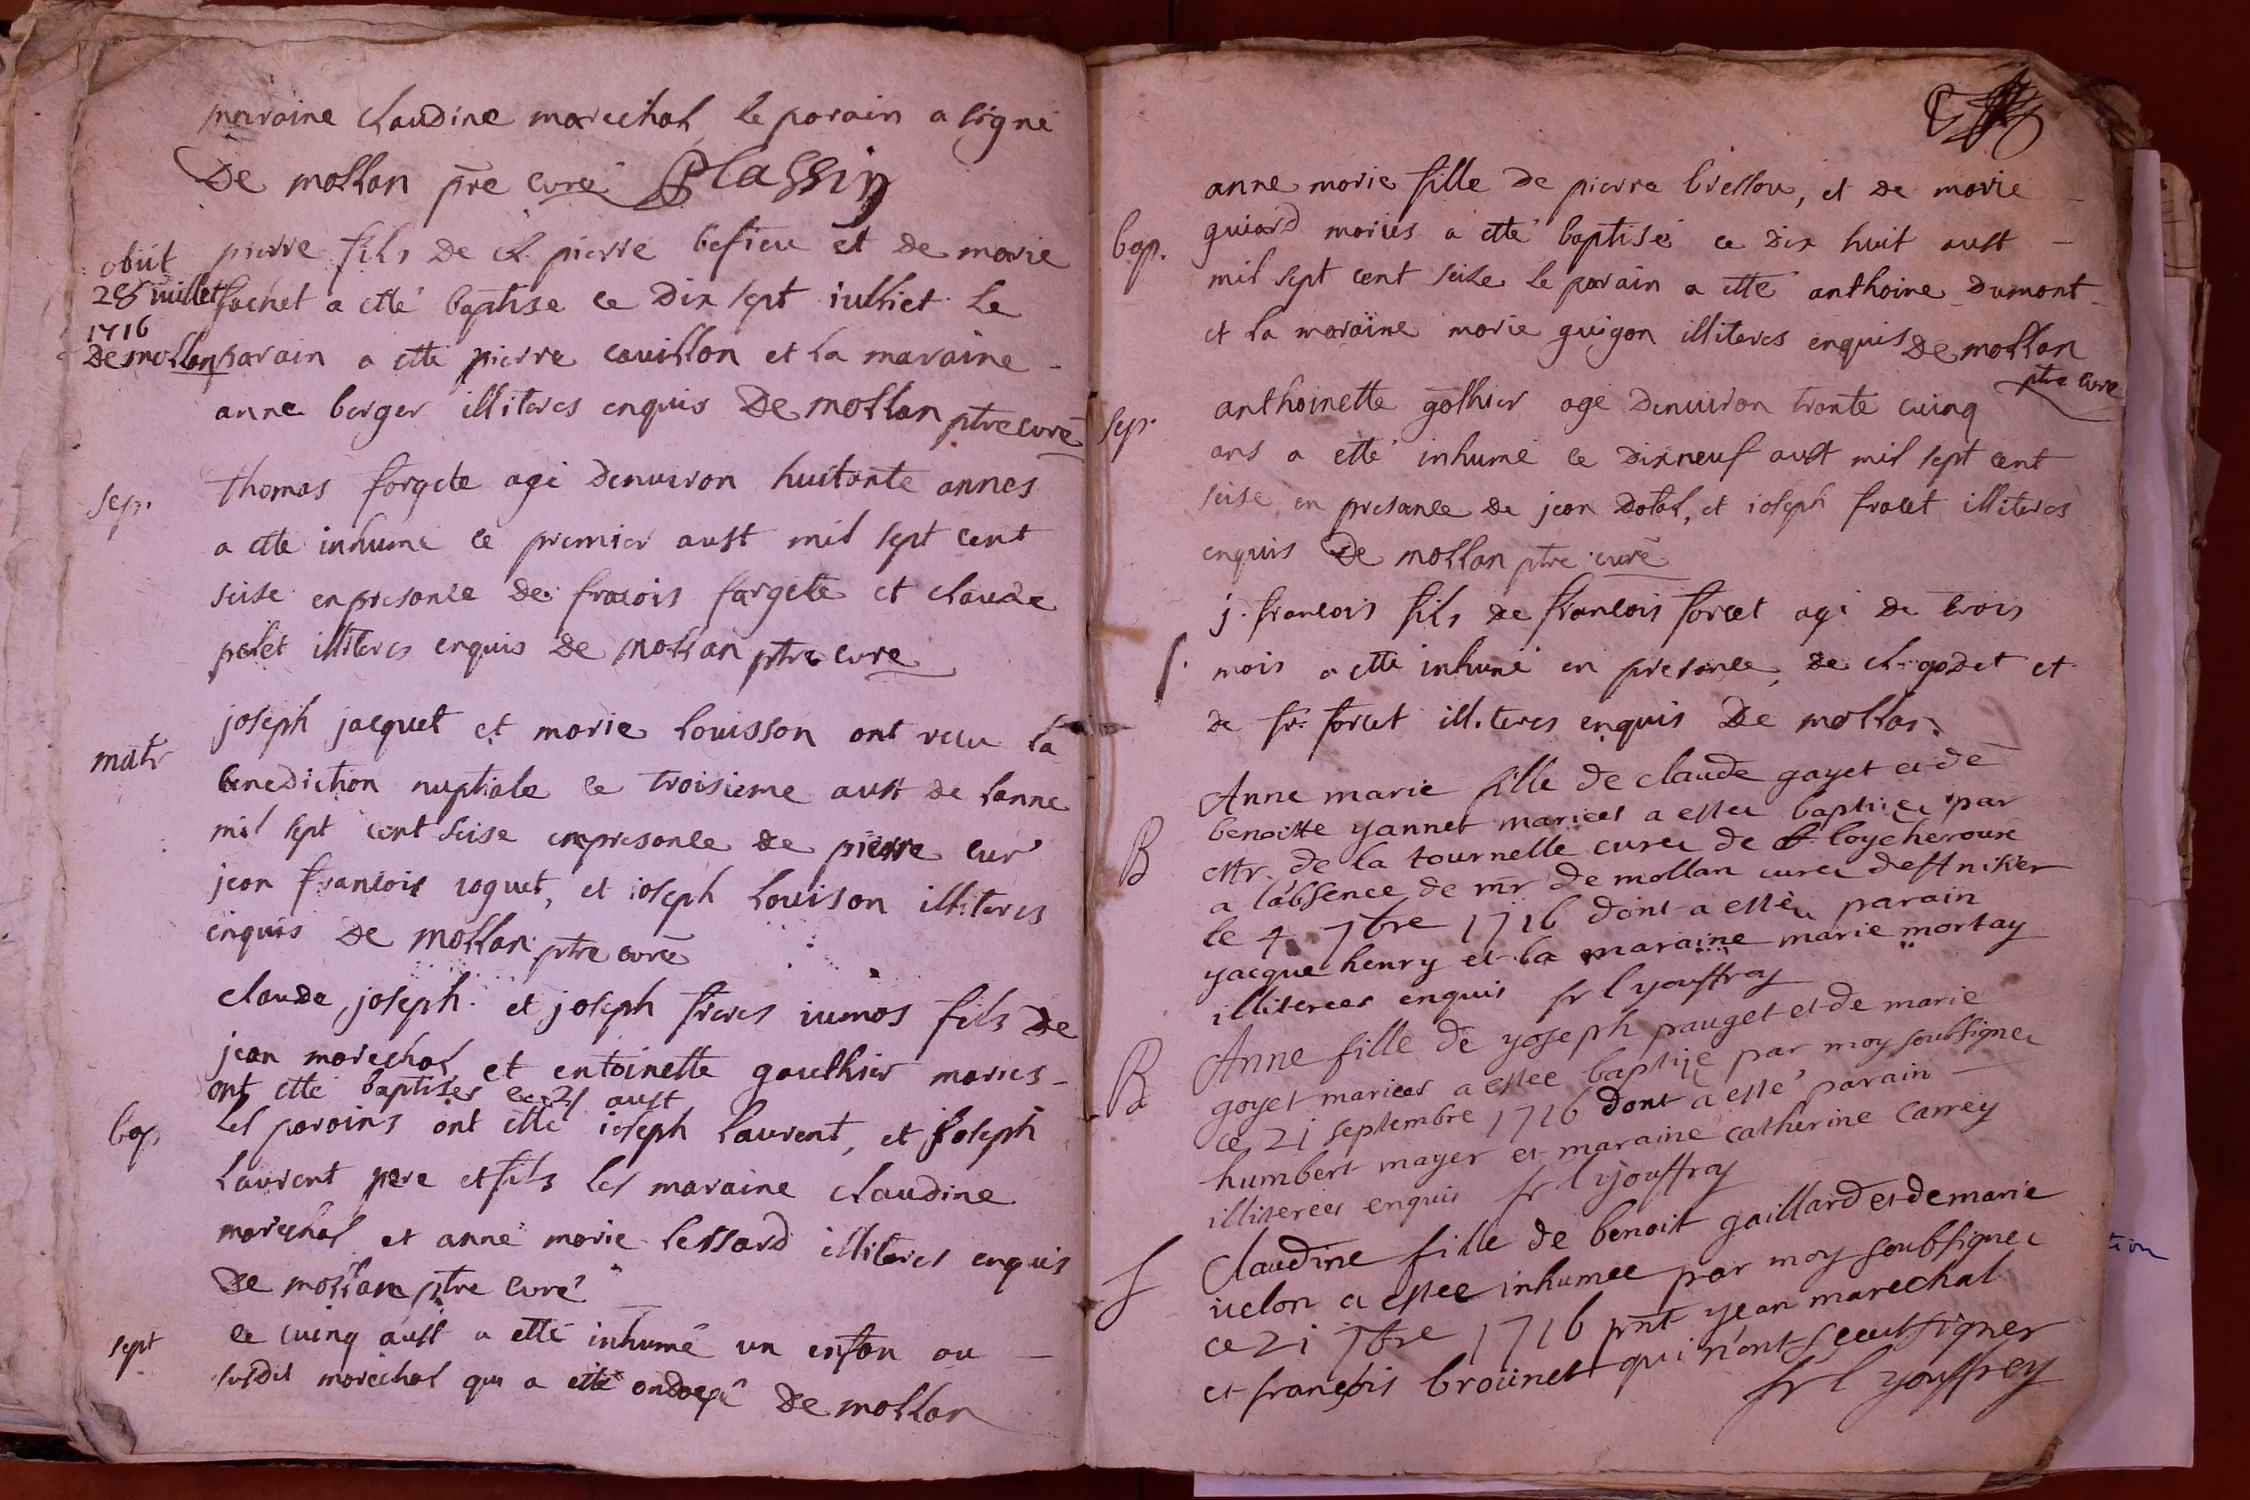 maraine claudine marechal le parain a signé
De mollan pre curé Plassin
pierre fils de cl pierre befieu et de marie
obiit
28 iuillet
1716
De mollan
fachet a etté baptise ce dix sept iulliet le
parain a etté pierre cauillon et la maraine
anne berger illiteres enquis De mollan ptre curé
sep.
thomas forgete agé denuiron huitante annes
a etté inhumé le premier aust mil sept cent
seise en presance de fracois fargete et claude
pelet illiteres enquis De mollan ptre curé
matr
joseph jacquet et marie louisson ont recu la
benediction nuptiale le troisieme aust de lanne
mil sept cent seise en presance de pierre cur
jean francois coquet, et ioseph louison illiteres
enquis De mollan ptre curé
claude joseph et joseph freres iumos fils de
jean marechal et entoinette gauthier maries
ont etté baptises le 21 aust
bap.
les parains ont etté ioseph laurent, et joseph
laurent pere et fils les maraine claudine
marechal et anne marie lessard illiteres enquis
De mollan ptre curé
sept
le cuinq aust a etté inhumé un enfan au
susdit marechal qui a etté ondoyé De mollan
anne marie fille de pierre brellou, et de marie
bap.
guiard mariés a etté baptisé ce dix huit aust
mil sept cent seize le parain a etté anthoine Dumont
et la maraine marie guigon illiteres enquis De mollan
ptre curé
sep.
anthoinette golhier age denuiron trante cuinq
ans a etté inhumé le dixneuf aust mil sept cent
seise en presance de jean dotal, et ioseph fracet illiteres
enquis De mollan ptre curé
j. francois fils de francois forcet agé de trois
s.
mois a etté inhumé en presance de cl godet et
de fr. forcet illiteres enquis De mollan
Anne marie fille de claude gayet et de
B
benoitte yannet mariees a estee baptisee par
mtr. de la tournelle curee de st loycheroure
a labsence de mr de mollan curee de st nisier
le 4 7bre 1716 dont a estée parain
yacque henry et la maraine marie mortay
illiterees enquis fr l youffray
B
Anne fille de yoseph pauget et de marie
goyet mariees a estee baptisé par moy soubsignee
ce 21 septembre 1716 dont a esté parain
humbert mayer et maraine catherine carrey
illiterees enquis fr l youffray
s
Claudine fille de benoit gaillard et de marie
uelon a estee inhumee par moy soubsignee
ce 21 7bre 1716 pnt yean marechal
et françois broünet qui n'ont sceut signer
fr l youffrey